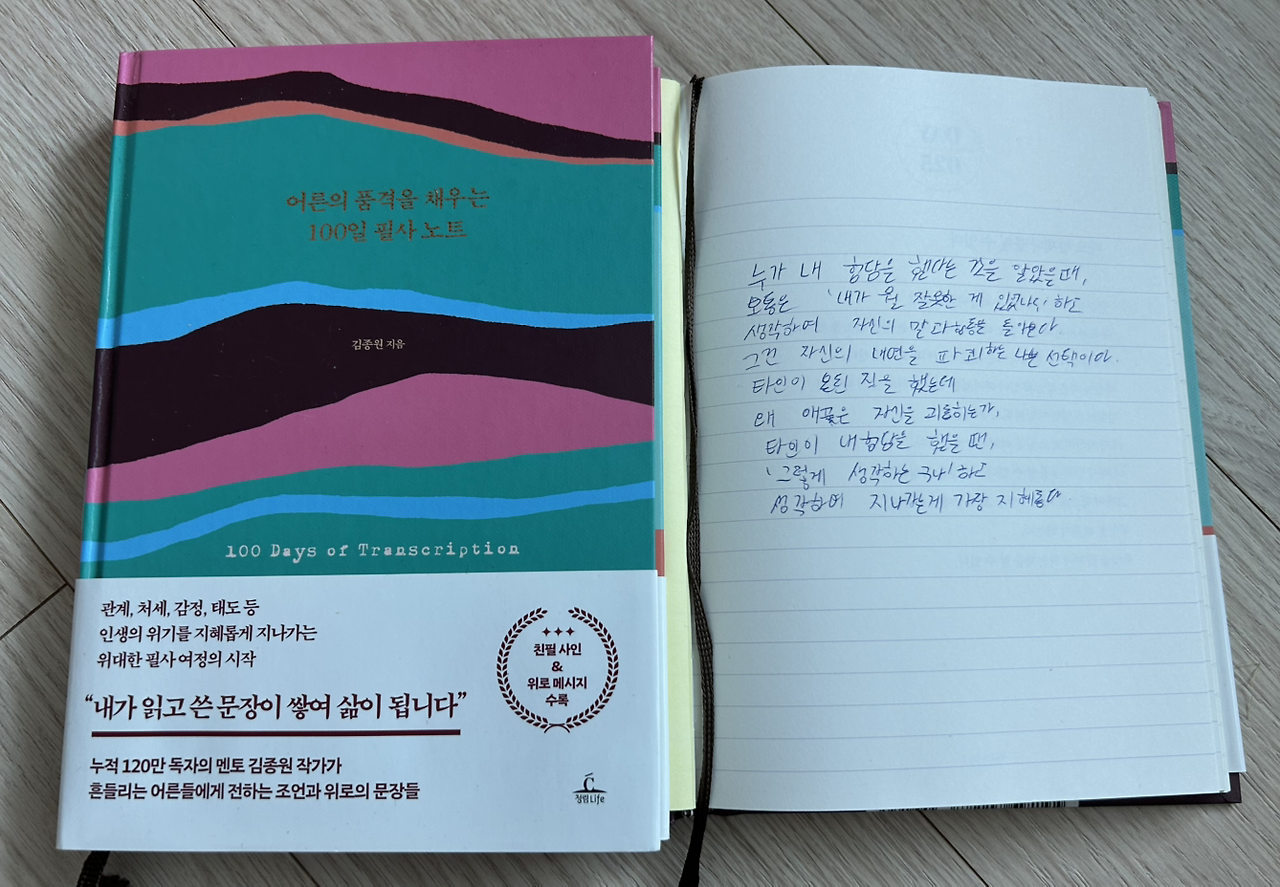 어른의 품격을 채우는
100일 필사 노트
김종원 지음
100 Days of Transcription
관계, 처세, 감정, 태도 등
인생의 위기를 지혜롭게 지나가는
위대한 필사 여정의 시작
“내가 읽고 쓴 문장이 쌓여 삶이 됩니다”
누적 120만 독자의 멘토 김종원 작가가
흔들리는 어른들에게 전하는 조언과 위로의 문장들
친필 사인
&
위로 메시지
수록
청림Life
누가 내 험담을 했다는 것을 알았을 때,
보통은 '내가 뭘 잘못한 게 있었나' 하고
생각하며 자신의 말과 행동을 돌아본다
그건 자신의 내면을 파괴하는 나쁜 선택이다.
타인이 못된 짓을 했는데
왜 애꿎은 자신을 괴롭히는가,
타인이 내 험담을 했을 땐,
'그렇게 생각하는 구나' 하고
생각하며 지나가는게 가장 지혜롭다.